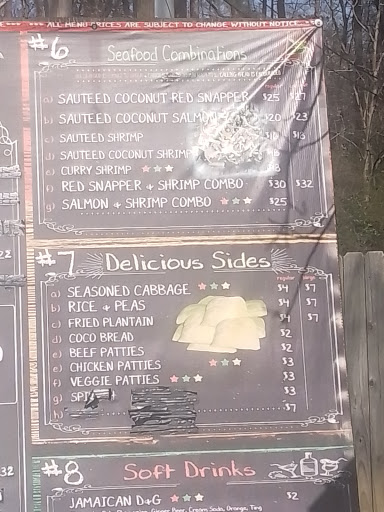 ALL MENU PRICES ARE SUBJECT TO CHANGE WITHOUT NOTICE
#6
Seafood Combinations
a) SAUTEED COCONUT RED SNAPPER $25 $27
b) SAUTEED COCONUT SALMON $20 $23
c) SAUTEED SHRIMP
d) SAUTEED COCONUT SHRIMP
e) CURRY SHRIMP
f) RED SNAPPER + SHRIMP COMBO $30 $32
g) SALMON + SHRIMP COMBO $25
#7 Delicious Sides
regular large
a) SEASONED CABBAGE $4 $7
b) RICE + PEAS $4 $7
c) FRIED PLANTAIN $4 $7
d) COCO BREAD $2
e) BEEF PATTIES $2
e) CHICKEN PATTIES $3
f) VEGGIE PATTIES $3
g) $3
h) $7
#8 Soft Drinks
JAMAICAN D+G $2
Ginger Beer, Cream Soda, Orange, Ting
22
32